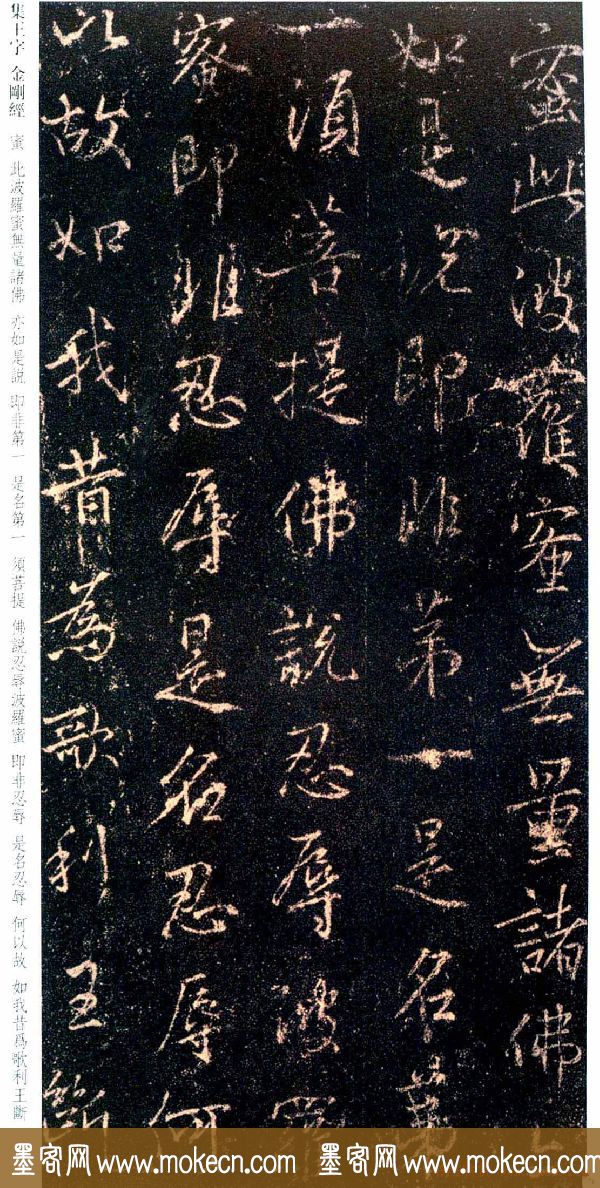 蜜此波羅蜜無量諸佛
如是說即非第一是名第
一須菩提佛說忍辱波羅
蜜即非忍辱是名忍辱何
以故如我昔為歌利王斷
集王字 金剛經 蜜 此波羅蜜無量諸佛 亦如是說 即非第一 是名第一 須菩提 佛說忍辱波羅蜜 即非忍辱 是名忍辱 何以故 如我昔爲歌利王斷
墨客网 www.mokecn.com 墨客网 www.mokecn.com